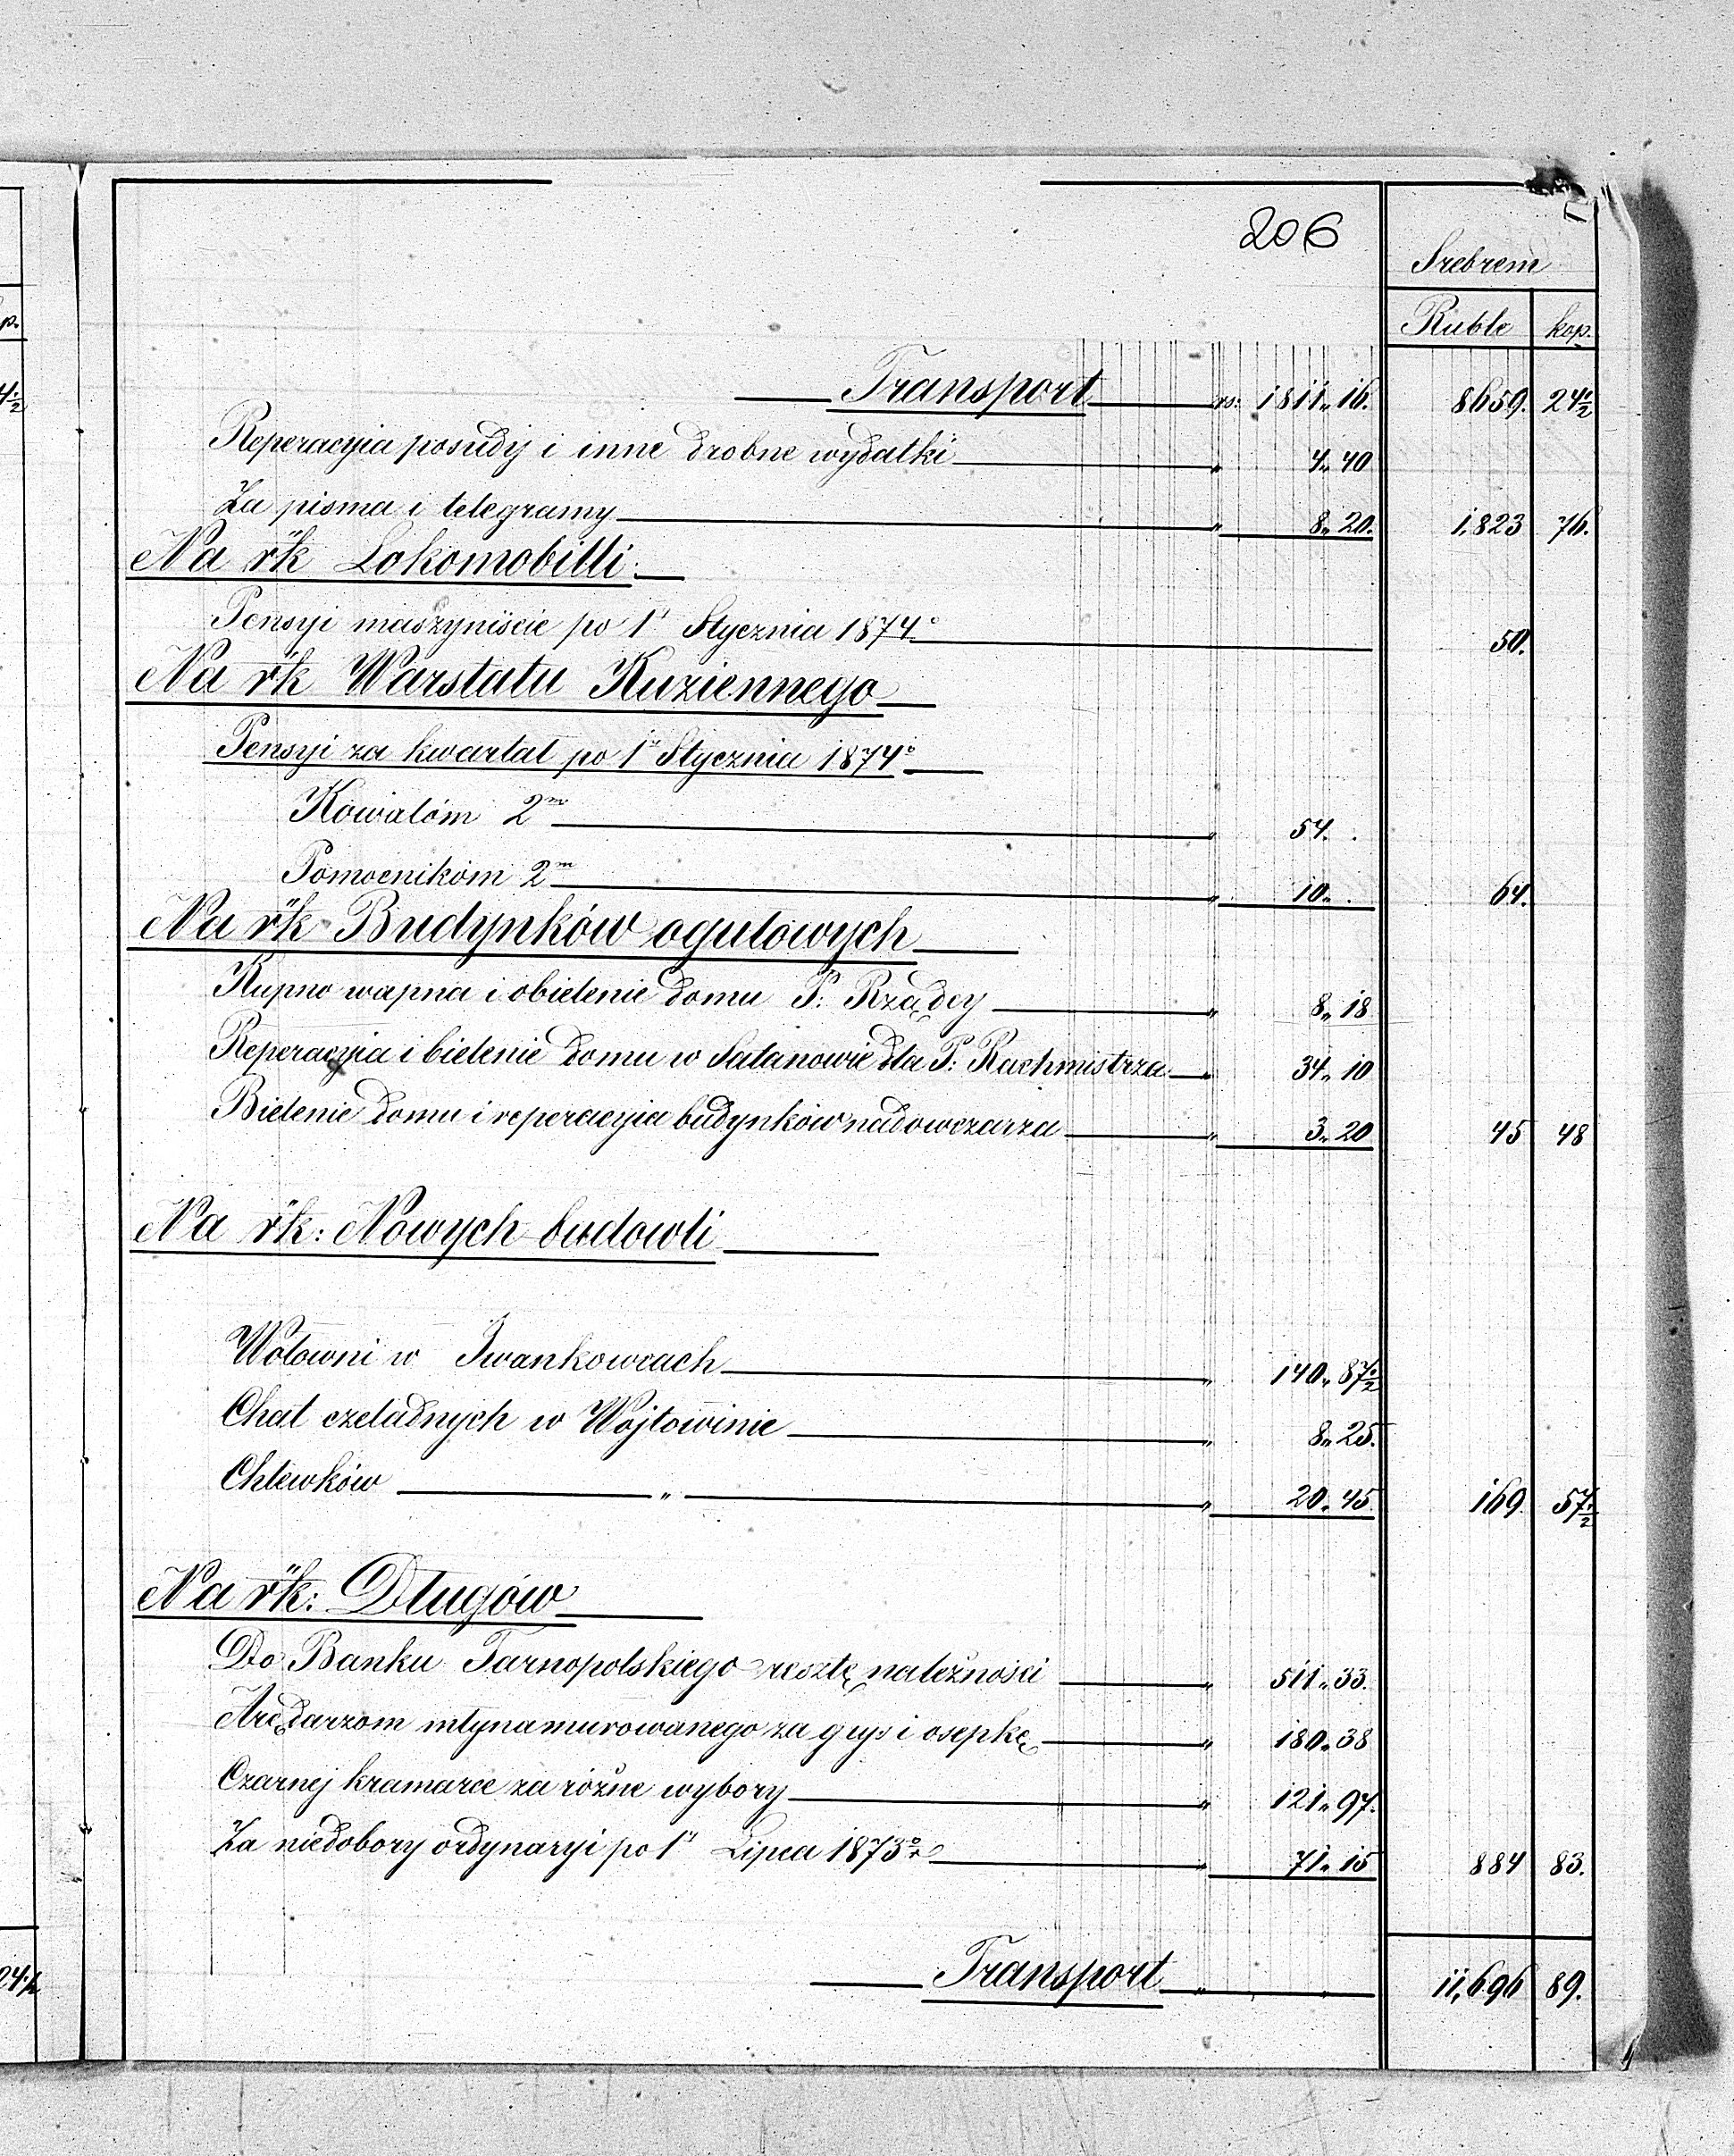 206
Srebrem
Ruble kop.
p.
Transport rs: 1811„16. 8659. 24½
4½
Reperacyia posudy i inne drobne wydatki „ 4„40
Za pisma i telegramy „ 8„20. 1,823 76.
Na rk Lokomobilli:
Pensyi maszyniście po 1ᵘ Stycznia 1874° 50.
Na rk Warstatu Kuziennego
Pensyi za kwartał po 1ᵘ Stycznia 1874°
Kowalóm 2ᵐ „ 54. .
Pomocnikóm 2ᵐ „ 10„ . 64.
Na rk Budynków ogułowych
Kupno wapna i obielenie domu P: Rządcy „ 8„18
Reperacyia i bielenie domu w Satanowie dla P: Rachmistrza „ 34„10
Bielenie domu i reperacyia budynków nadowczarza „ 3„20 45 48
Na rk: Nowych budowli
Wołowni w Iwankowcach „ 140„87½
Chat czeladnych w Wojtowinie „ 8„25.
Chlewków „ „ 20„45 169 57½
Na rk: Długów
Do Banku Tarnopolskiego resztę należności „ 511„33.
Arędarzom młyna murowanego za gys i osepkę „ 180„38
Czarnej kramarce za różne wybory „ 121„97.
Za niedobory ordynaryi po 1ᵘ Lipca 1873° „ 71„15 884 83.
24½
Transport „ „ 11,696 89.